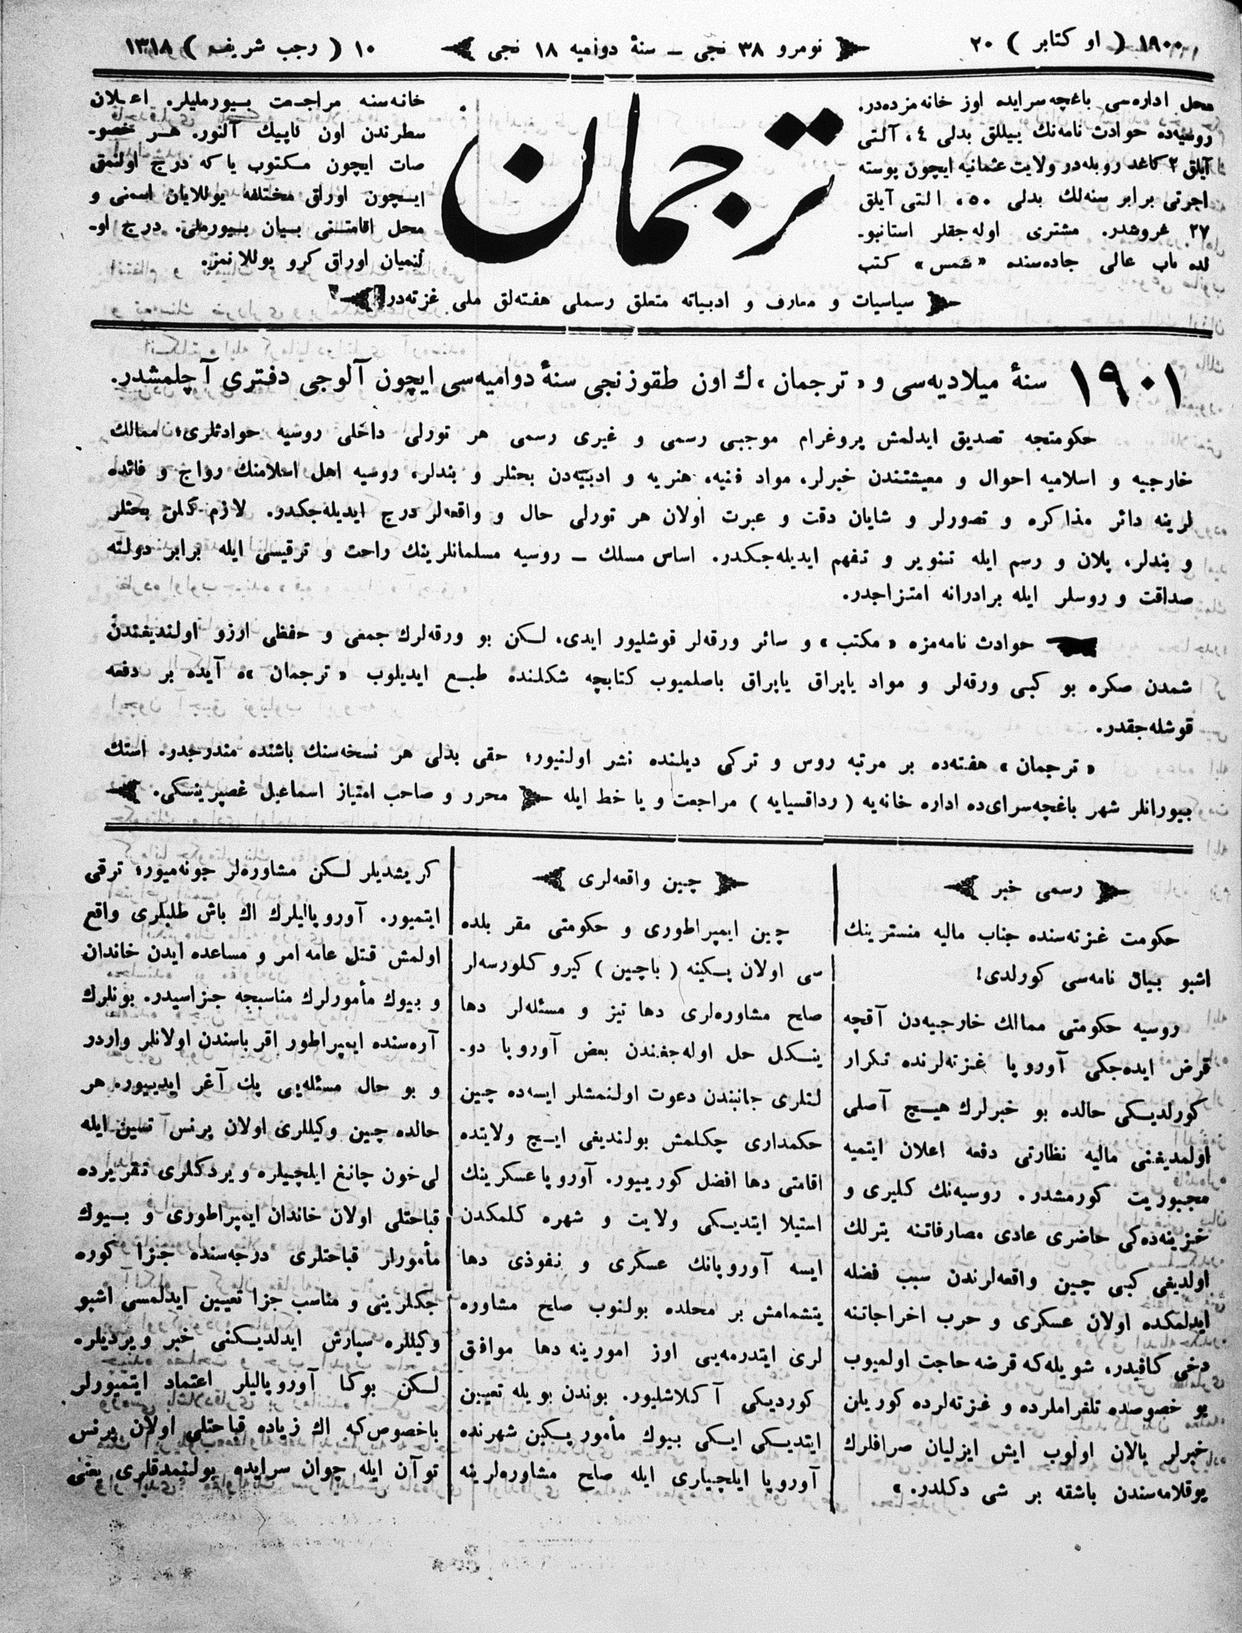 ١٩٠٠ ( او كتابر ) ٢٠
نومرو ٣٨ نجی ــ سنهٔ دواميه ١٨ نجی
١٠ ( رجب شريف ) ١٣١٨
محل اداره‌سی باغچه‌سرايده اوز خانه‌مزده‌در.
روسيه‌ده حوادث نامه‌نك ييللق بدلی ٤، آلتی
آيلق ٢ كاغد روبله‌در ولايت عثمانيه ايچون پوسته
اجرتی برابر سنه‌لك بدلی ٥٠، التی آيلق
٢٧ غروشدر. مشتری اوله‌جقلر استانبو-
لده باب عالی جاده‌سنده «شمس» كتب
ترجمان
خانه‌سنه مراجعت بيورمليلر. اعلان
سطرندن اون كاپيك آلنور. هر خصو-
صات ايچون مكتوب ياكه درج اولنمق
ايچون اوراق مختلفه يوللايان اسمنی و
محل اقامتنی بيان بيورملی. درج او-
لنميان اوراق كرو يوللانمز.
سياسيات و معارف و ادبياته متعلق رسملی هفته‌لق ملی غزته‌در
١٩٠١ سنهٔ ميلاديه‌سی و «ترجمان»ك اون طقوزنجی سنهٔ دواميه‌سی ايچون آلوجی دفتری آچلمشدر.
حكومتجه تصديق ايدلمش پروغرام موجبی رسمی و غيری رسمی هر تورلی داخلی روسيه حوادثلری؛ ممالك
خارجيه و اسلاميه احوال و معيشتندن خبرلر، مواد فنيه، هنريه و ادبيه‌دن بحثلر و بندلر، روسيه اهل اسلامنك رواج و فائده
لرينه دائر مذاكره و تصورلر و شايان دقت و عبرت اولان هر تورلی حال و واقعه‌لر درج ايديله‌جكدو. لازم كلن بحثلر
و بندلر، پلان و رسم ايله تنوير و تفهم ايديله‌جكدر. اساس مسلك ــ روسيه مسلمانلرينك راحت و ترقيسی ايله برابر دولته
صداقت و روسلر ايله برادرانه امتزاجدر.
حوادث نامه‌مزه «مكتب» و سائر ورقه‌لر قوشليور ايدی، لكن بو ورقه‌لرك جمعی و حفظی ارزو اولنديغندن
شمدن صكره بو كبی ورقه‌لر و مواد ياپراق ياپراق باصلميوب كتابچه شكلندهٔ طبع ايديلوب «ترجمان»ه آيده بر دفعه
قوشله‌جقدر.
«ترجمان» هفته‌ده بر مرتبه روس و تركی ديلنده نشر اولنيور؛ حقی بدلی هر نسخه‌سنك باشنده مندرجدر. استك
بيورانلر شهر باغچه‌سرای‌ده اداره خانه‌يه (رداقسيايه) مراجعت و يا خط ايله محرر و صاحب امتياز اسماعيل غصپرينسكی.
رسمی خبر
حكومت غزته‌سنده جناب ماليه منسترينك
اشبو بيان نامه‌سی كورلدی!
روسيه حكومتی ممالك خارجيه‌دن آقچه
قرض ايده‌جكی آوروپا غزته‌لرنده تكرار
كورلديكی حالده بو خبرلرك هيچ آصلی
اولمديغنی ماليه نظارتی دفعه اعلان ايتميه
مجبوريت كورمشدر. روسيه‌نك كليری و
خزينه‌ده‌كی حاضری عادی مصارفاتنه يترلك
اولديغی كبی چين واقعه‌لرندن سبب فضله
ايدلمكده اولان عسكری و حرب اخراجاتنه
دخی كافيدر، شويله‌كه قرضه حاجت اولميوب
بو خصوصده تلغراملرده و غزته‌لرده كوريلن
خبرلر يالان اولوب ايش ايزليان صرافلرك
يوقلامه‌سندن باشقه بر شی دكلدر. »
چين واقعه‌لری
چين ايمپراطوری و حكومتی مقر بلده
سی اولان پكينه (باچين) كيرو كلورسه‌لر
صلح مشاوره‌لری دها تيز و مسئله‌لر دها
ينكل حل اوله‌جغندن بعض آوروپا دو-
لتلری جانبندن دعوت اولنمشلر ايسه‌ده چين
حكمداری چكلمش بولنديغی ايچ ولايتده
اقامتی دها افضل كورييور. آوروپا عسكرينك
استيلا ايتديكی ولايت و شهره كلمكدن
ايسه آوروپانك عسكری و نفوذی دها
يتشمامش بر محلده بولنوب صلح مشاوره
لری ايتدرمه‌يی اوز امورينه دها موافق
كورديكی آكلاشليور. بوندن بويله تعيين
ايتديكی ايكی بيوك مأمور پكين شهرنده
آوروپا ايلچياری ايله صلح مشاوره‌لرينه
كريشديلر لكن مشاوره‌لر جونه‌ميور؛ ترقی
ايتميور. آوروپاليلرك اك باش طلبلری واقع
اولمش قتل عامه امر و مساعده ايدن خاندان
و بيوك مأمورلرك مناسبجه جزاسيدر. بونلرك
آره‌سنده ايمپراطور اقرباسندن اولانلر واردر
و بو حال مسئله‌يی پك آغر ايدييور. هر
حالده چين وكيللری اولان پرنس تسين ايله
لی خون چانغ ايلچيلره ويردكلری تقريرده
قباحتلی اولان خاندان ايمپراطوری و بيوك
مأمورلر قباحتلری درجه‌سنده جزا كوره
جكلرينی و مناسب جزا تعيين ايدلمسی اشبو
وكيللره سپارش ايدلديكنی خبر ويرديلر.
لكن بوكا آوروپاليلر اعتماد ايتميورلر
باخصوص‌كه اك زياده قباحتلی اولان پرنس
توآن ايله چوان سرايده بولنمدقلری يعنی